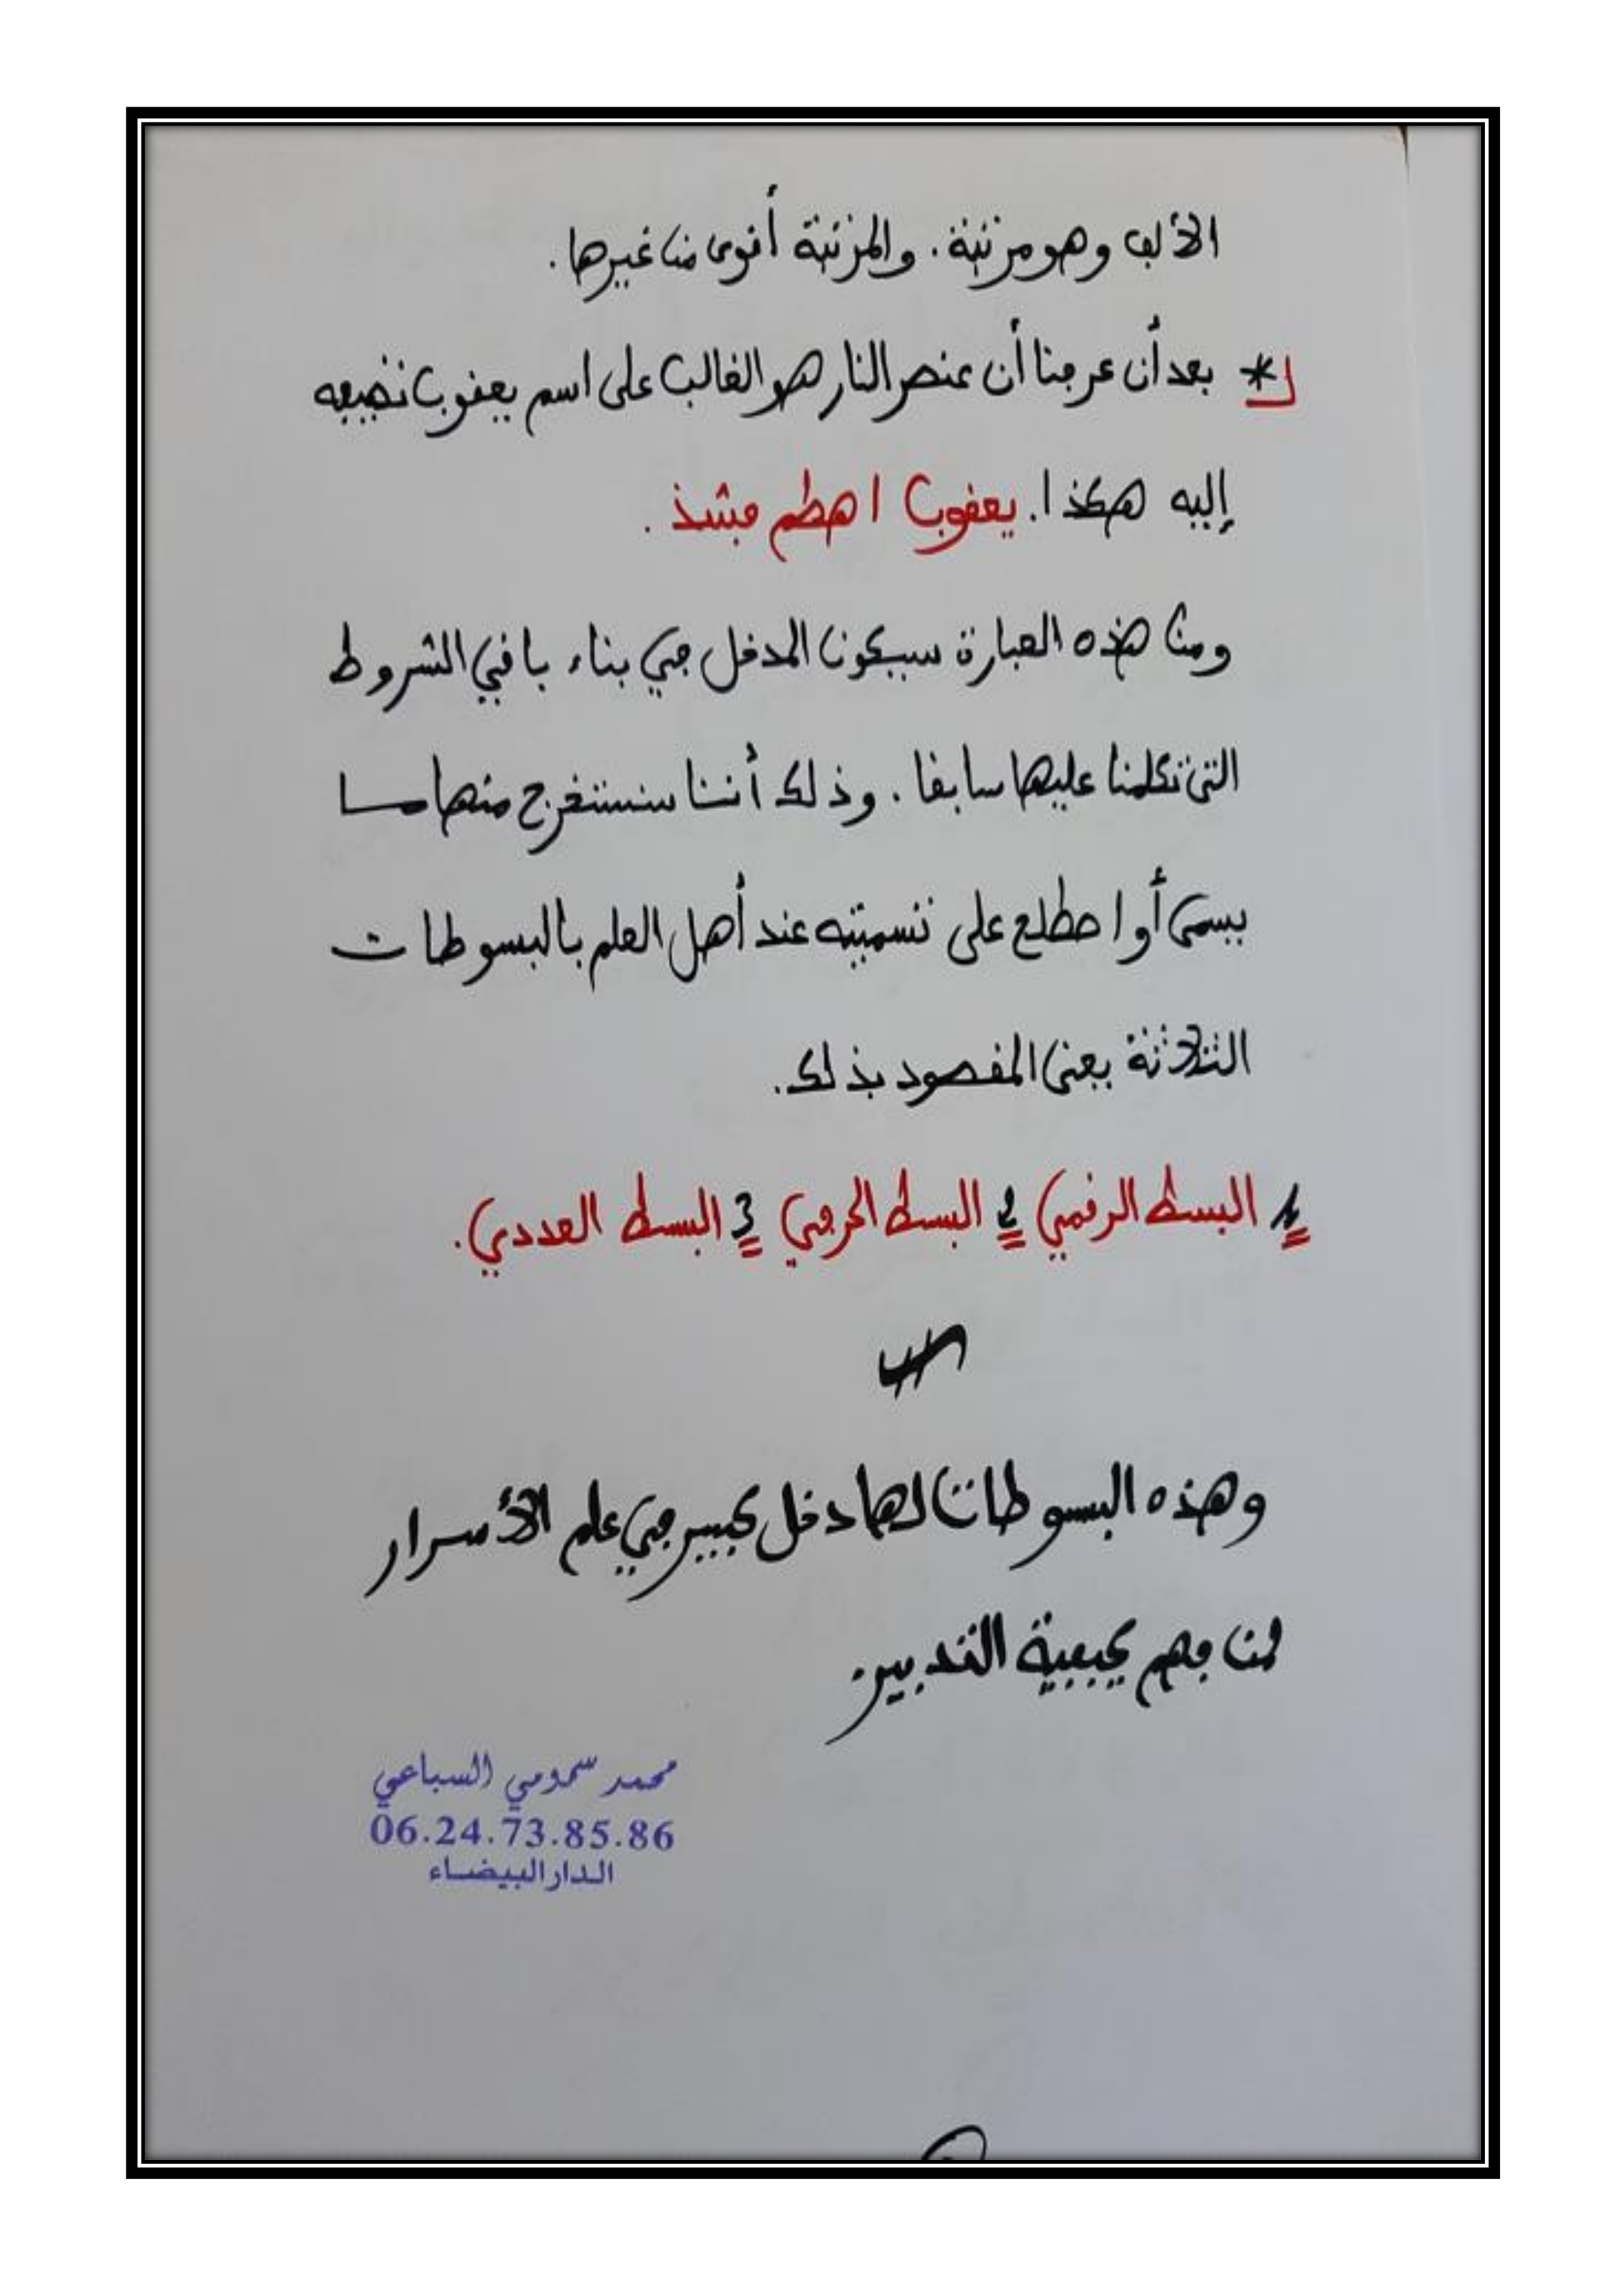 الألف وهو مرتبة. والمرتبة أقوى من غيرها.
* بعد أن عرفنا أن عنصر النار هو الغالب على اسم يعقوب نضيفه
إليه هكذا. يعقوب اهطم فشذ.
ومن هذه العبارة سيكون المدخل في بناء باقي الشروط
التي تكلمنا عليها سابقا. وذلك أننا سنستخرج منها ما
يسمى أو اصطلح على تسميته عند أهل العلم بالبسوطات
الثلاثة يعني المقصود بذلك.
1 البسط الرقمي 2 البسط الحرفي 3 البسط العددي.
وهذه البسوطات لها دخل كبير في علم الأسرار
لمن فهم كيفية التدبير.
محمد سمومي السباعي
06.24.73.85.86
الدار البيضاء